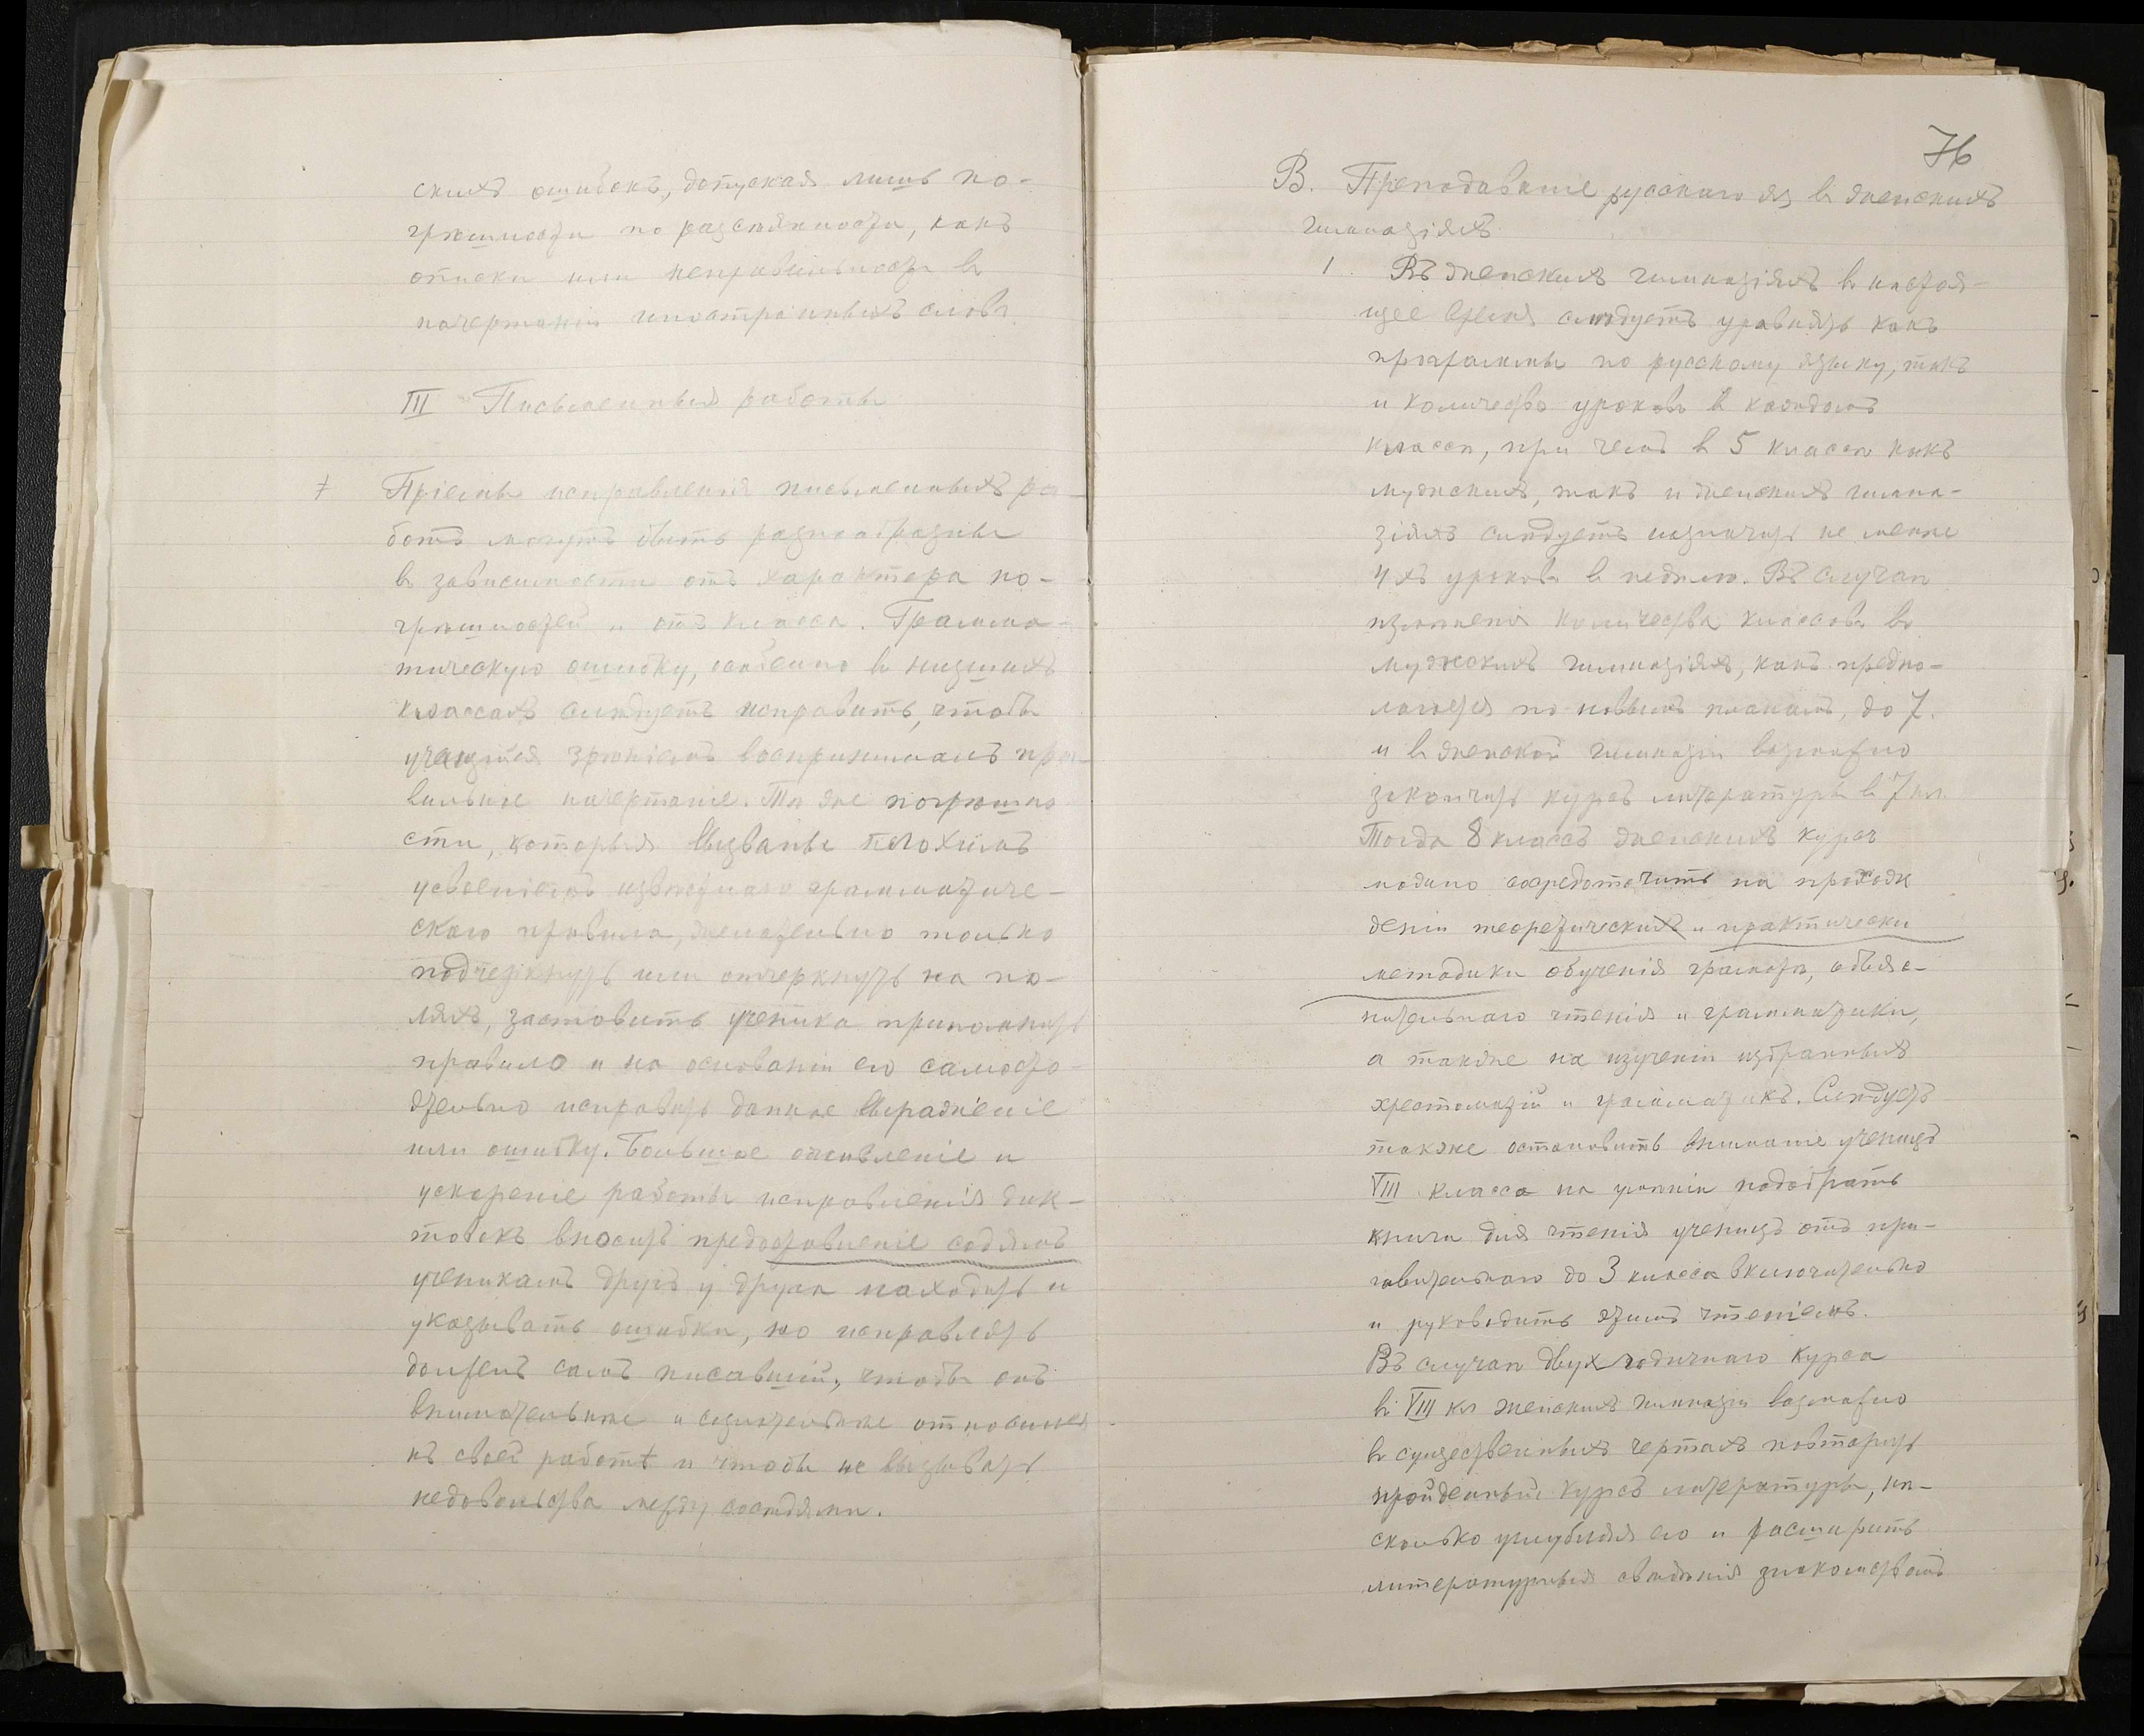 скихъ ошибокъ, допуская лишь по-
грѣшности по разсѣянности, какъ
описки или неправильности въ
начертаніи иностранныхъ словъ.
III Письменныя работы
Пріемы исправленія письменныхъ ра-
ботъ могутъ быть разнообразны
въ зависимости отъ характера по-
грѣшностей и отъ класса. Грамма-
тическую ошибку, особенно въ низшихъ
классахъ слѣдуетъ исправить, чтобы
учащійся зрѣніемъ воспринималъ пра-
вильное начертаніе. Тѣ же погрѣшно
сти, которыя вызваны плохимъ
усвоеніемъ извѣстнаго граммматиче-
скаго правила, желательно только
подчеркнуть или отчеркнуть на по-
ляхъ, заставить ученика припомнить
правило и на основаніи его самосто-
ятельно исправить данное выраженіе
или ошибку. Большое оживленіе и
ускореніе работы исправленія дик-
товокъ вноситъ предоставленіе
ученикамъ другъ у друга находить и
указывать ошибки, но исправлять
долженъ самъ писавшій, чтобы онъ
внимательнѣе и сознательнѣе относился
къ своей работѣ и чтобы не вызывать
недовольства между сосѣдями.
76
В. Преподаваніе русскаго яз въ женскихъ
гимназіяхъ
1. Въ женскихъ гимназіяхъ въ настоя-
щее время слѣдуетъ уравнять какъ
программы по русскому языку, такъ
и количество уроковъ въ каждомъ
классѣ, при чемъ въ 5 классѣ какъ
мужскихъ, такъ и женскихъ гимна-
зіяхъ слѣдуетъ назначить не менѣе
4хъ уроковъ въ недѣлю. Въ случаѣ
измѣненія количества классовъ въ
мужскихъ гимназіяхъ, какъ предпо-
лагается по новымъ планамъ, до 7.
и въ женской гимназіи возможно
закончить курсъ литературы въ 7 кл.
Тогда 8 классъ женскихъ курс
можно сосредоточить на прохож
деніи теоретически и практически
методики обученія грамотѣ, объяс-
нительнаго чтенія и грамматики,
а также на изученіи избранныхъ
хрестоматій и грамматикъ. Слѣдуетъ
также остановить вниманіе ученицъ
VIII класса на умѣніи подобрать
книги для чтенія ученицъ отъ при-
готовительнаго до 3 класса включительно
и руководить этимъ чтеніемъ.
Въ случаѣ двухгодичнаго курса
въ VIII кл женскихъ гимназіи возможно
въ существенныхъ чертахъ повторить
пройденный курсъ литературы, нѣ-
сколько углубляя его и расширить
литературныя свѣдѣнія знакомствомъ